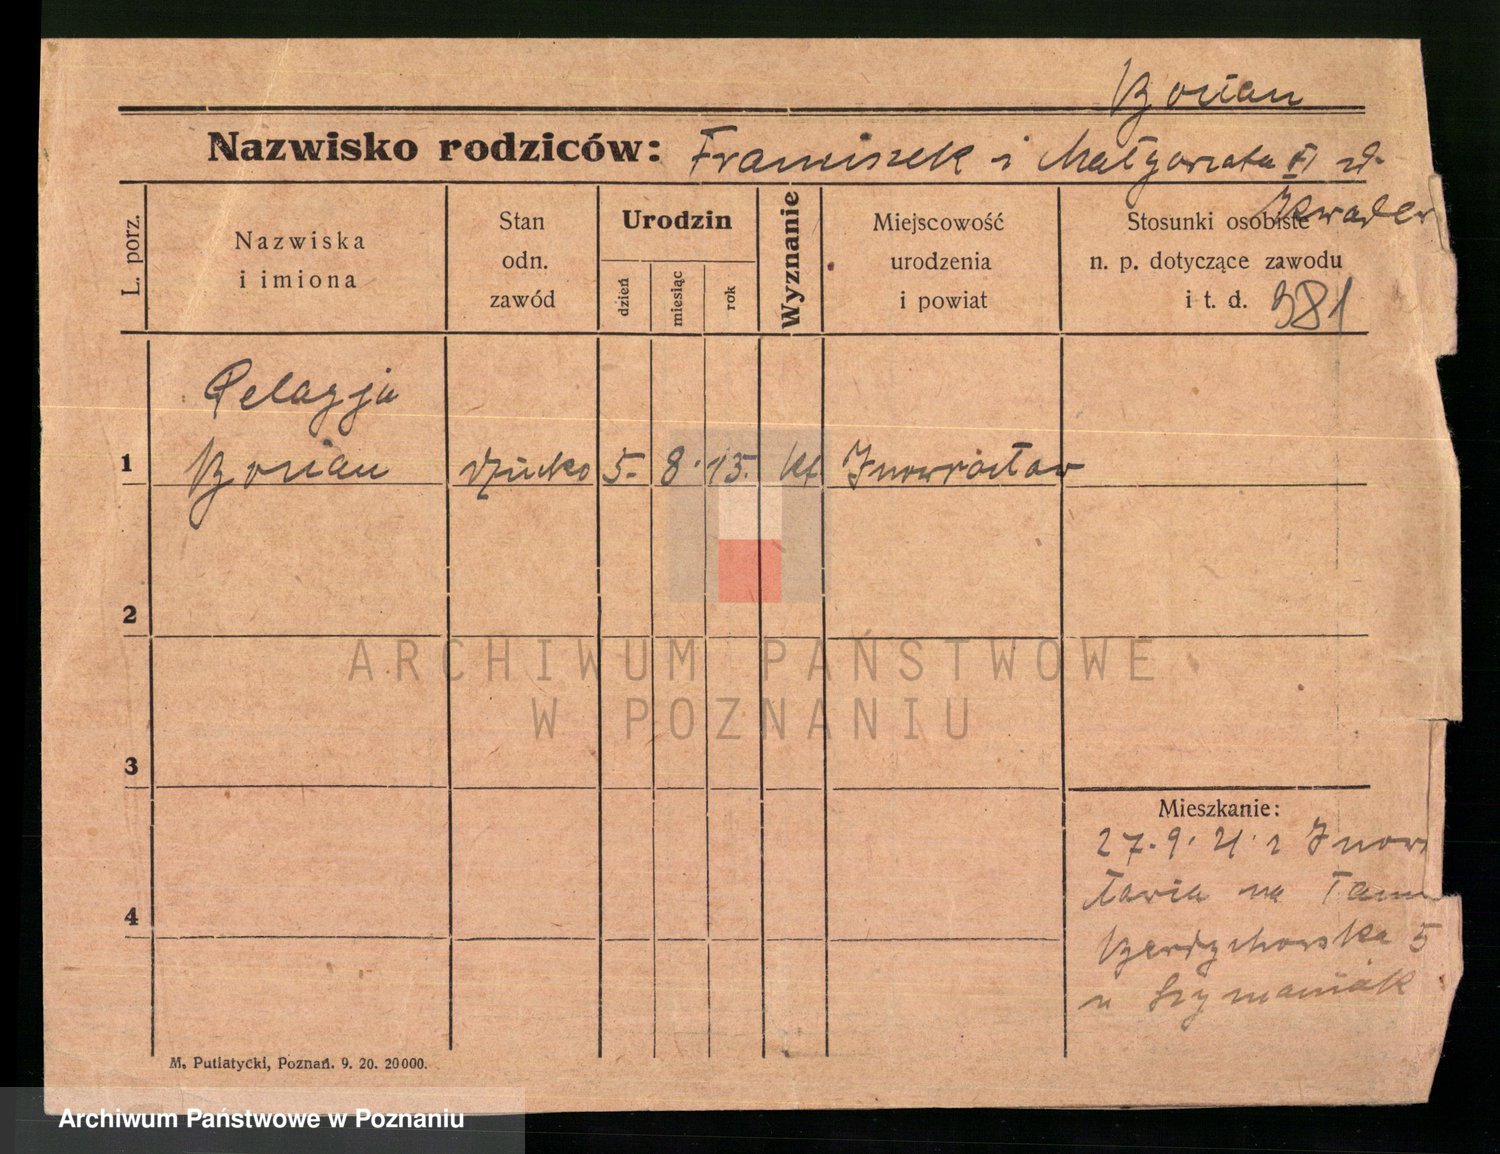 Borian
Nazwisko rodziców: Franciszek i Małgorzata
L. porz.
Nazwiska
i imiona
Stan
odn.
zawód
Urodzin
dzień
miesiąc
rok
Wyznanie
Miejscowość
urodzenia
i powiat
Stosunki osobiste
n. p. dotyczące zawodu
i t. d. 981
Pelagja
1 Borian dziecko 5. 8. 15. kt Inowrocław
2
3
4
Mieszkanie:
27. 9. 21 z Inow
cławia na
5
u Szymaniak
M. Putiatycki, Poznań. 9. 20. 20000.
ARCHIWUM PAŃSTWOWE
W POZNANIU
Archiwum Państwowe w Poznaniu